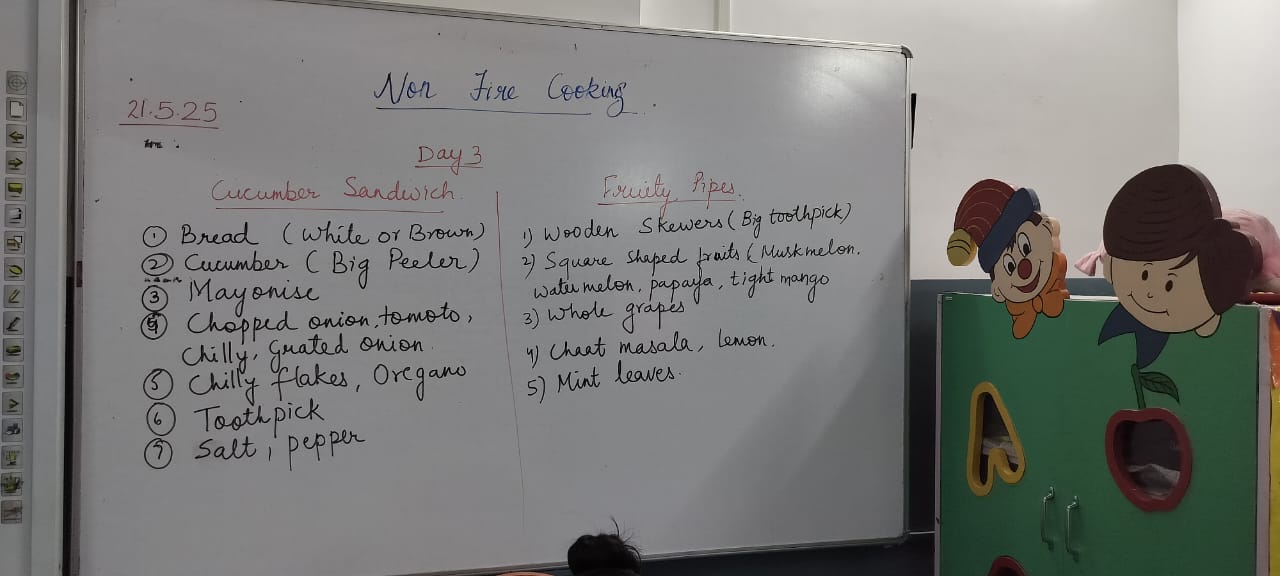 Non Fire Cooking
21.5.25
Day 3
Cucumber Sandwich
① Bread (White or Brown)
② Cucumber (Big Peeler)
③ Mayonise
④ Chopped onion, tomoto,
Chilly, grated onion
⑤ Chilly flakes, Oregano
⑥ Toothpick
⑦ Salt, pepper
Fruity Pipes.
1) Wooden Skewers (Big toothpick)
2) Square Shaped fruits (Muskmelon.
watermelon, papaya, tight mango
3) Whole grapes
4) Chaat masala, lemon.
5) Mint leaves.